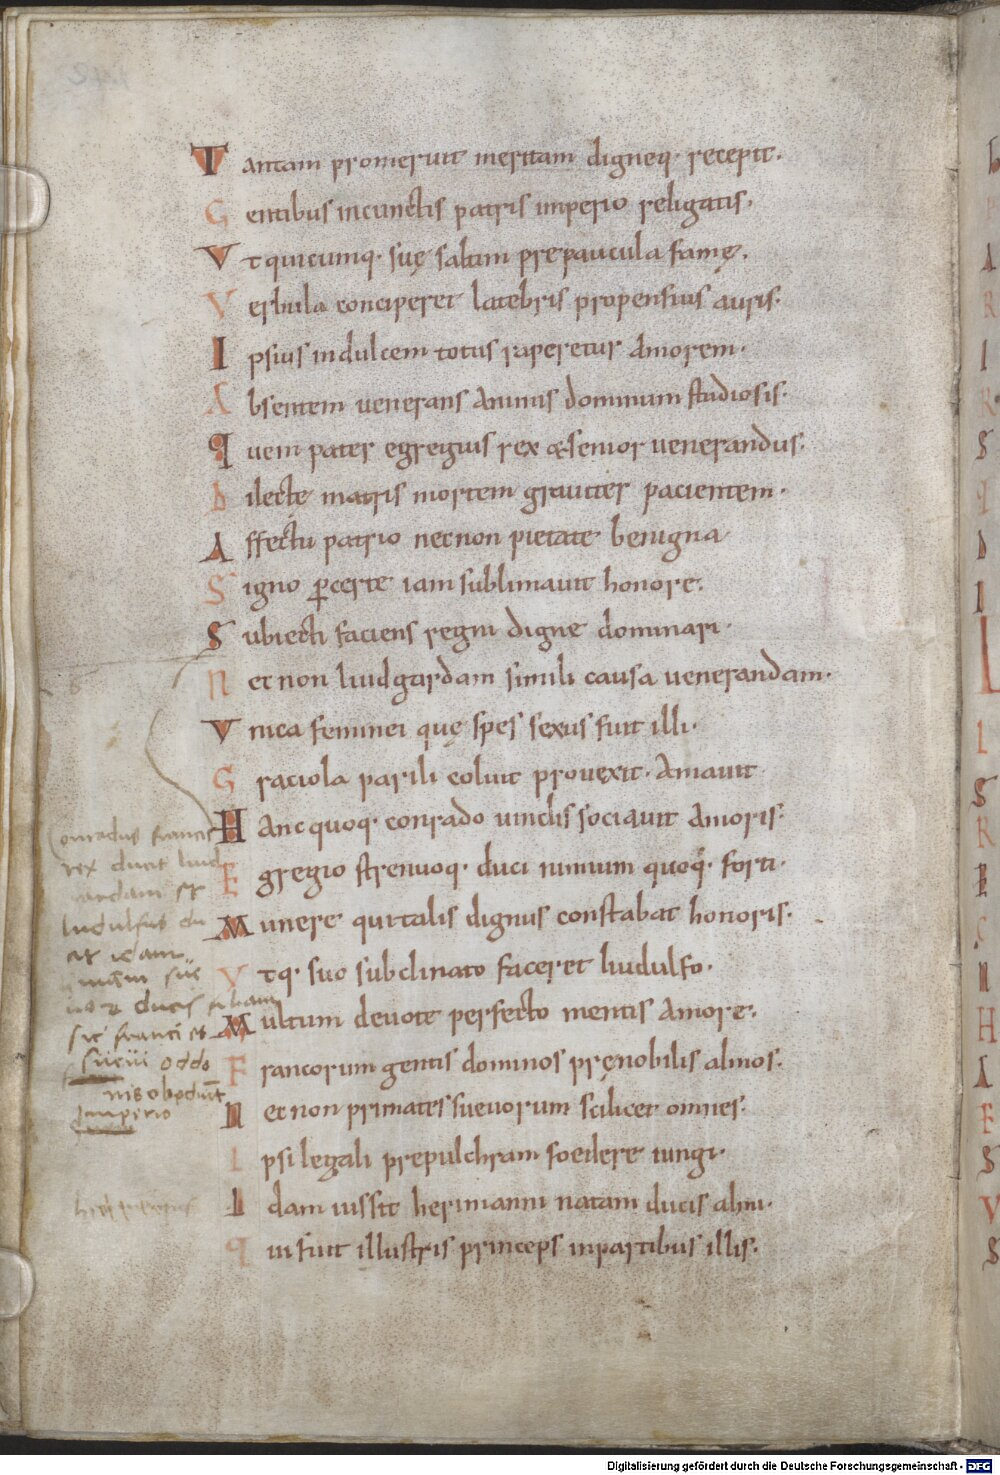 Tantam promeruit meritam digneq· recepit.
Gentibus incunctis patris imperio religatis.
Vt quicumq· suę saltim prepaucula famę.
Verbula conciperet latebris propensius auris.
Ipsius indulcem totus raperetur amorem.
Absentem venerans animis dominum studiosis.
Quem pater egregius rex & senior venerandus.
Dilectę matris mortem graviter pacientem.
Affectu patrio necnon pietate benigna
Signo ꝑcerte iam sublimavit honore.
Subiecti faciens regni digne dominari.
Necnon liudgardam simili causa venerandam.
Vnica feminei quę spes sexus fuit illi.
Graciola parili coluit provexit. Amavit
Hanc quoq· conrado vinclis sociavit amoris.
Egregio strenuoq· duci nimium quoq· forti.
Munere qui talis dignus constabat honoris.
Vtq· suo subclinato faceret liudulfo.
Multum devote perfecto mentis amore.
Francorum gentis dominos pręnobilis almos.
Necnon primates suevorum scilicet omnes.
Ipsi legali prepulchram foedere iungi.
Idam iussit herimanni natam ducis almi.
Qui fuit illustris princeps inpartibus illis.
Conradus francis
rex ducit liud
gardam et
ludulfus du
ducis filiam
sic franci et
suevii oddo
nis obediūt
Imperio
Digitalisierung gefördert durch die Deutsche Forschungsgemeinschaft - DFG